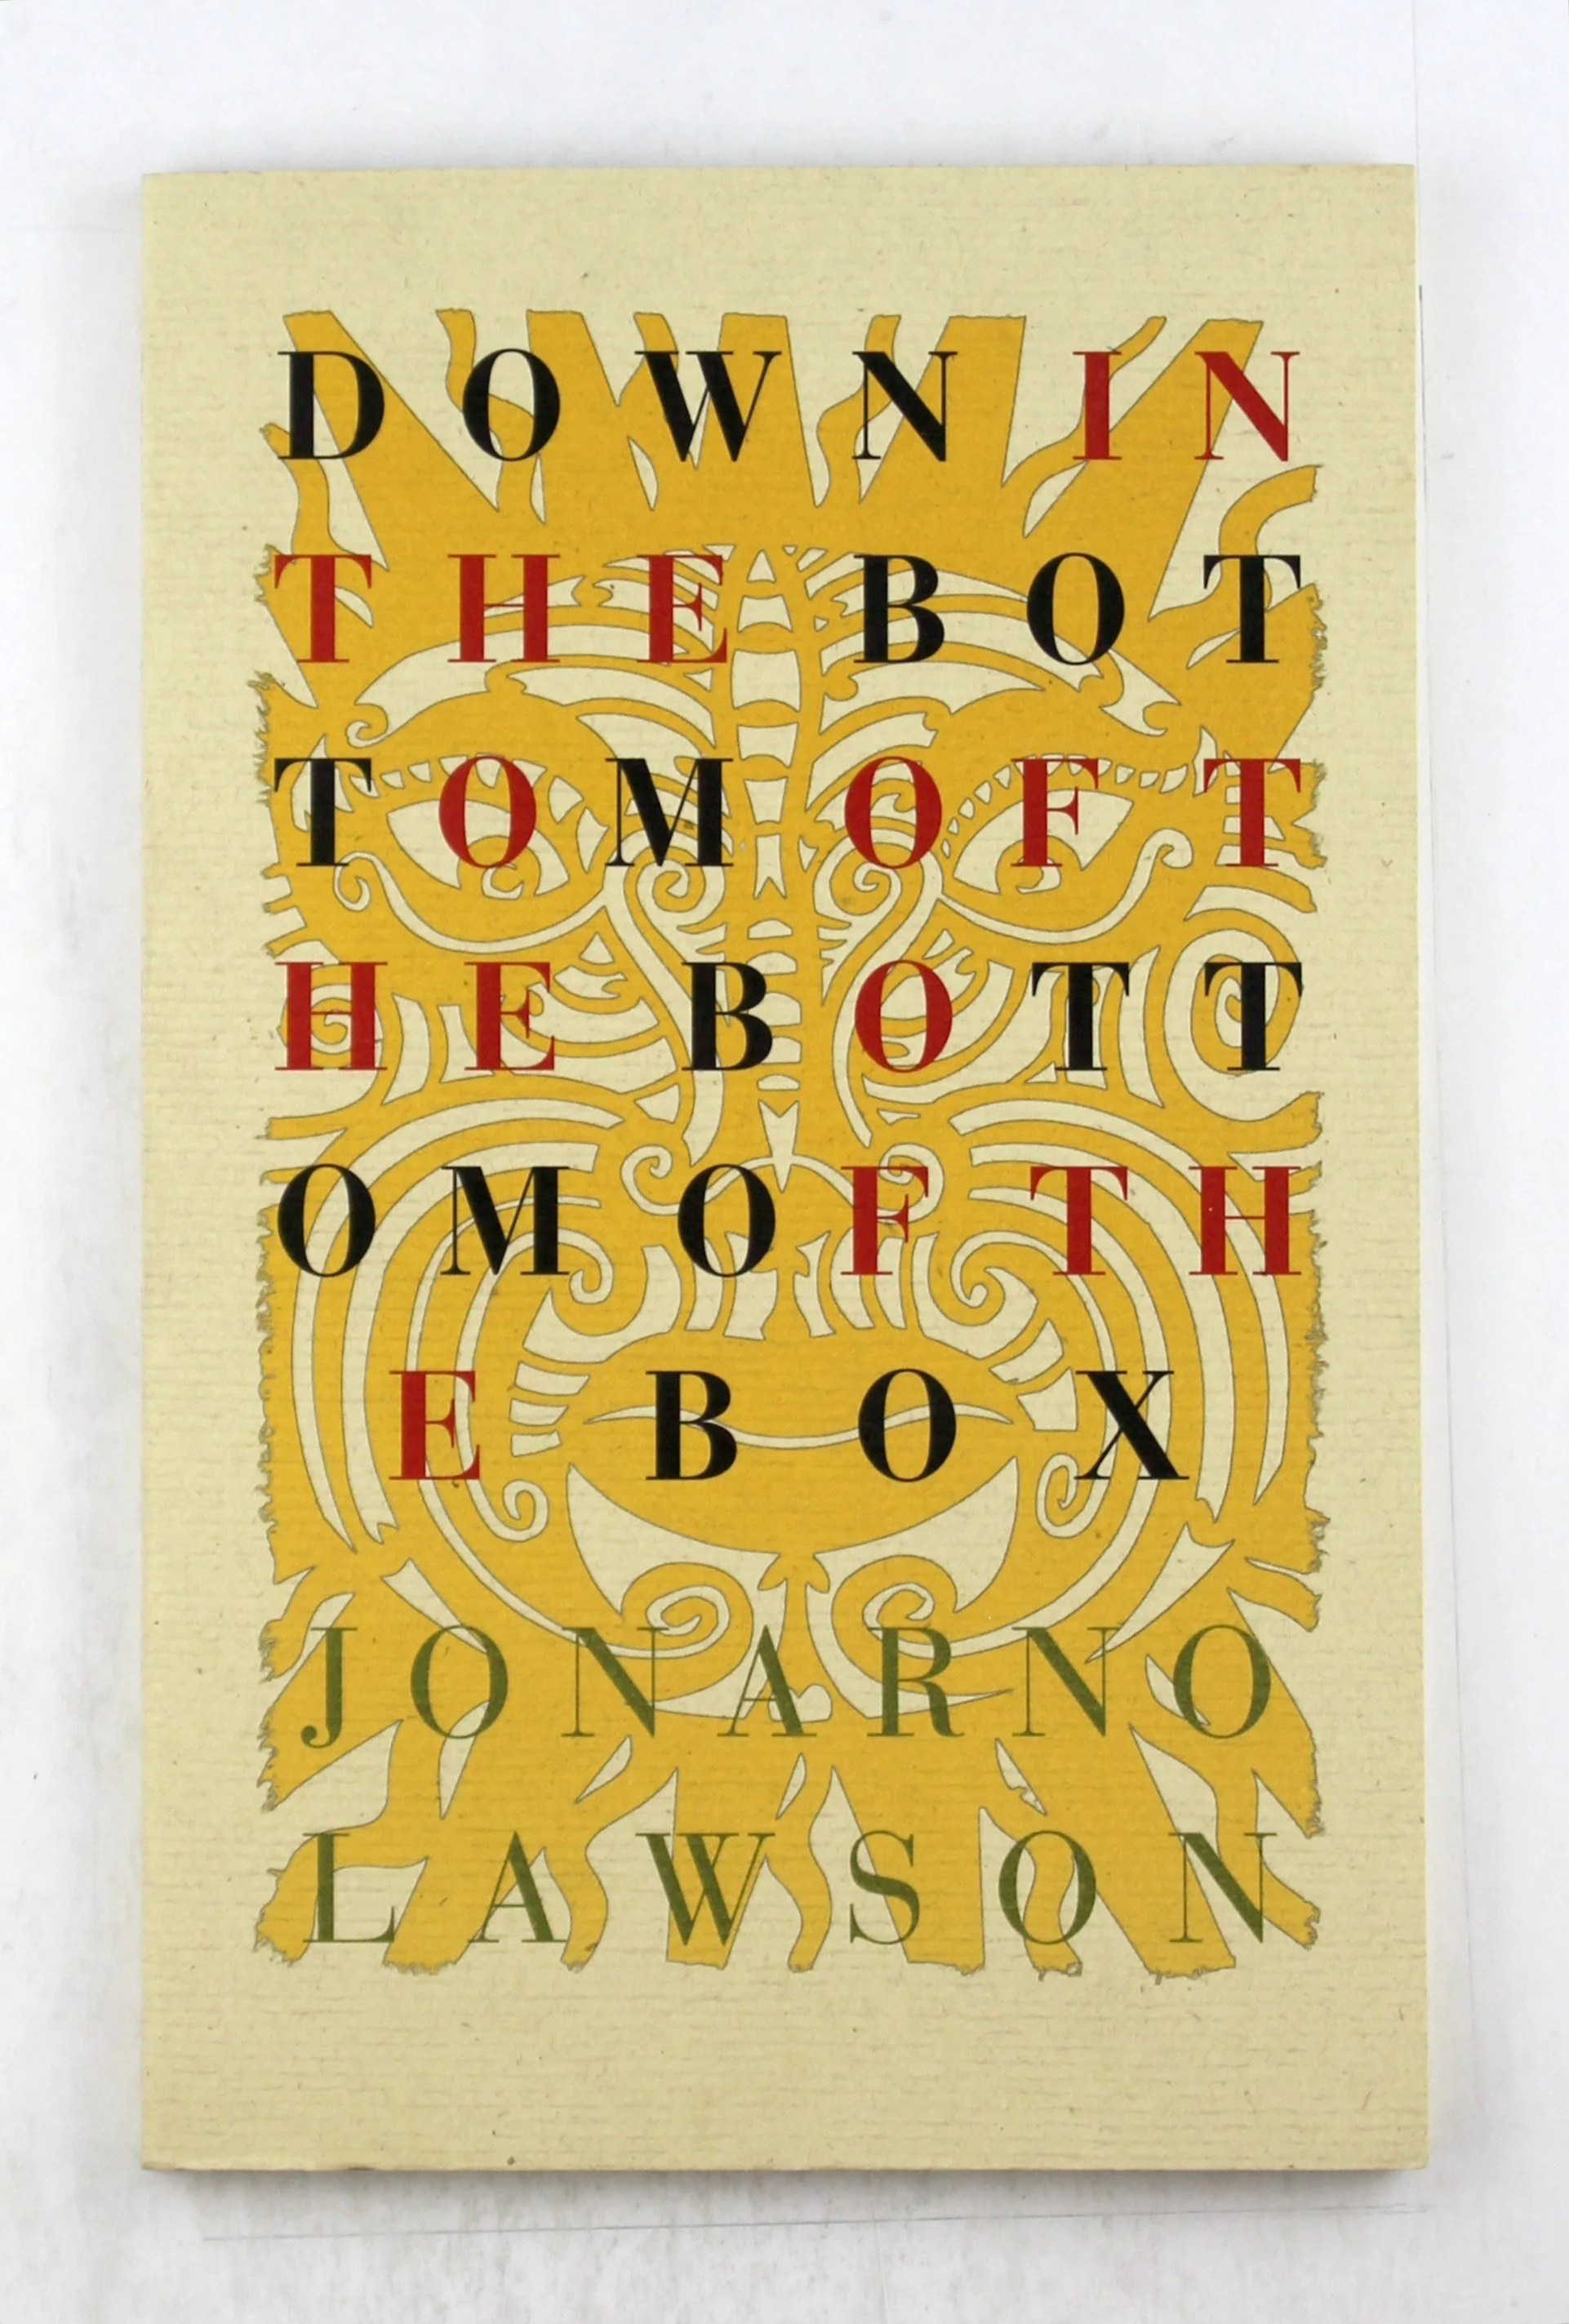 DOWN IN
THE BOT
TOM OF T
HE BOTT
OM OF TH
E BOX
JONARNO
LAWSON